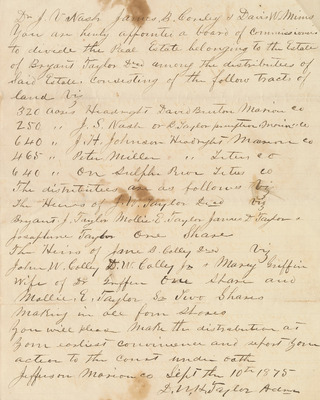 Dr J. V. Nash James B. Conly & Davis W. Mims
You are hereby appointed a board of Commissioners
to divide the Real Estate belonging to the Estate
of Bryant Taylor Decd among the distributies of
said Estate consisting of the follow tracts of
land Viz
320 acres Headright David Bruton Marion co
250 " J. S. Nash or B. Taylor preemption Marion co
640 " J. H. Johnson Headright Marion co
465 " Peter Miller " " Titus co
640 " On Sulpher River Titus co
The distributies are as follows Viz
The Heirs of J. W. Taylor Decd Viz
Bryant J. Taylor Mollie E. Taylor James D Taylor &
Josephine Taylor One Share
The Heirs of Jane B. Colley Decd Viz
John W. Colley D. W. Colley Jr & Mary Griffin
Wife of Dr Griffin One Share and
Mollie E. Taylor Two Shares
Making in all four Shares
You will please Make the distribution at
Your earliest convinience and report your
action to the court under oath
Jefferson Marion co Sept the 10th 1875
D. W. H. Taylor Admr